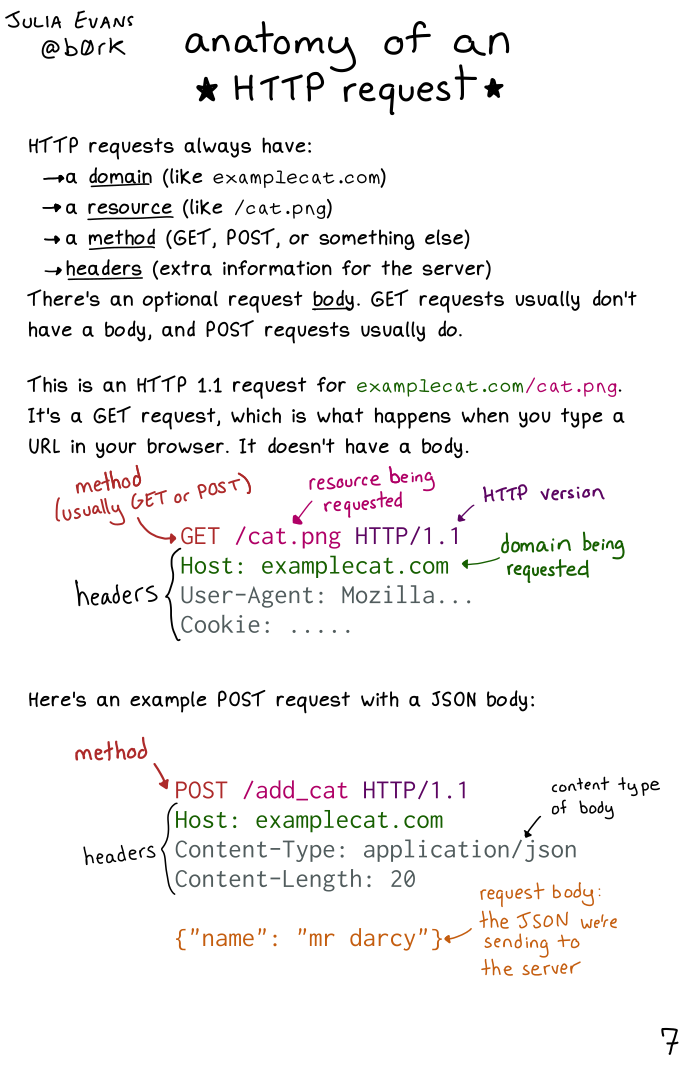 JULIA EVANS
@b0rk
anatomy of an
★ HTTP request ★
HTTP requests always have:
→ a domain (like examplecat.com)
→ a resource (like /cat.png)
→ a method (GET, POST, or something else)
→ headers (extra information for the server)
There's an optional request body. GET requests usually don't
have a body, and POST requests usually do.
This is an HTTP 1.1 request for examplecat.com/cat.png.
It's a GET request, which is what happens when you type a
URL in your browser. It doesn't have a body.
method
(usually GET or POST)
resource being
requested
HTTP version
GET /cat.png HTTP/1.1
domain being
requested
headers
Host: examplecat.com
User-Agent: Mozilla...
Cookie: .....
Here's an example POST request with a JSON body:
method
POST /add_cat HTTP/1.1
content type
of body
headers
Host: examplecat.com
Content-Type: application/json
Content-Length: 20
{"name": "mr darcy"}
request body:
the JSON we're
sending to
the server
7